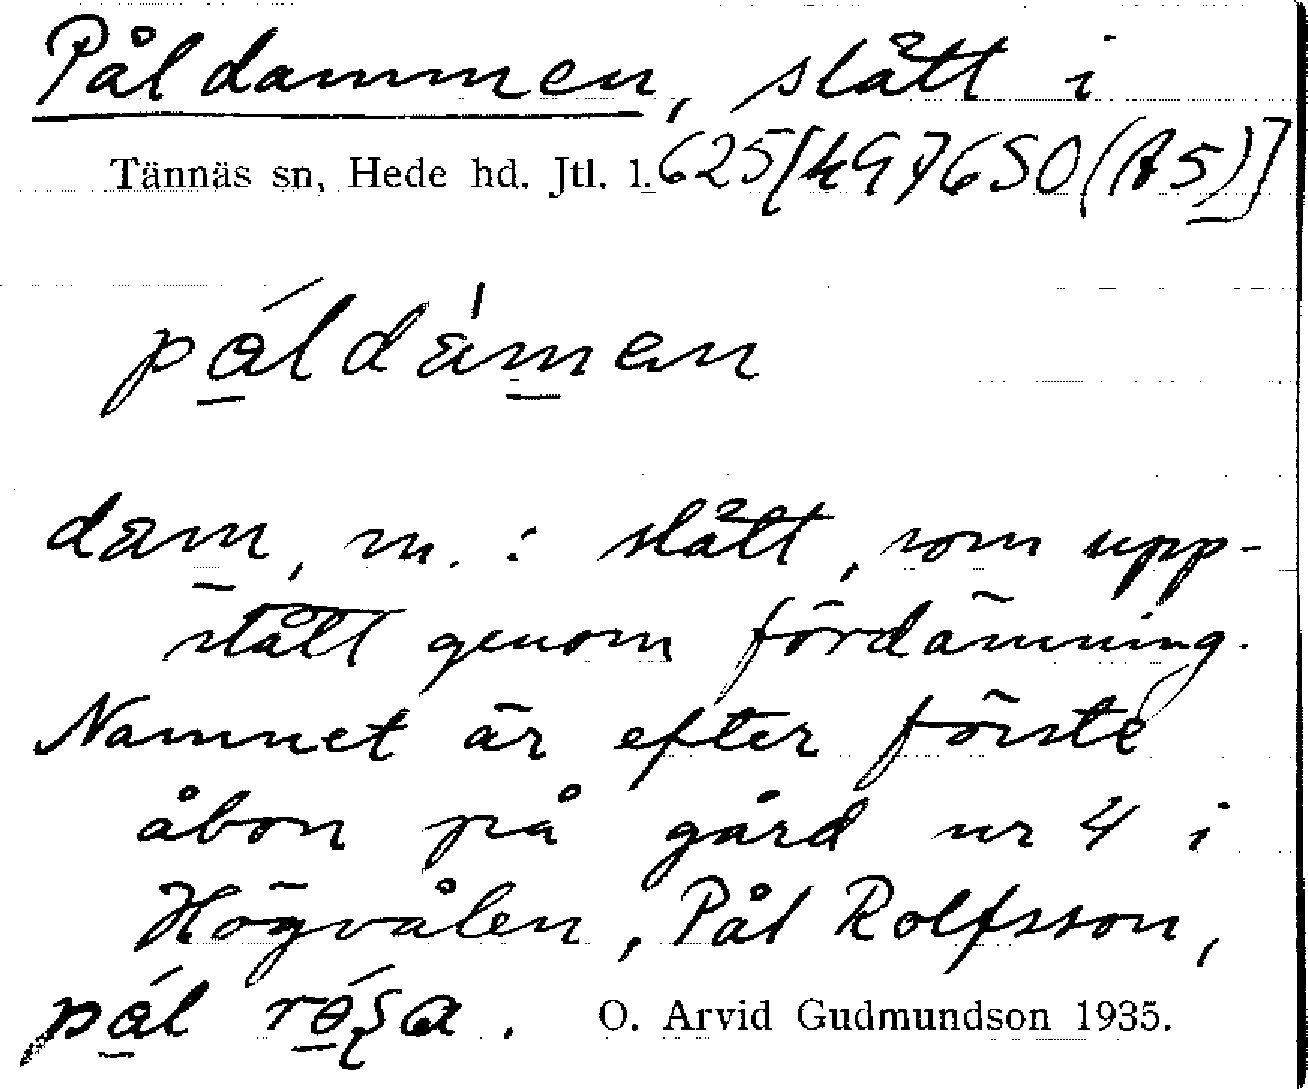 Påldammen, slått i
Tännäs sn, Hede hd. Jtl. l. 625[497650(A5)]
påldamen
dam, m. : slått, som upp-
stått genom fördämning.
Namnet är efter förste
åbon på gård nr 4 i
Högvålen, Pål Rolfsson,
pål
O. Arvid Gudmundson 1935.